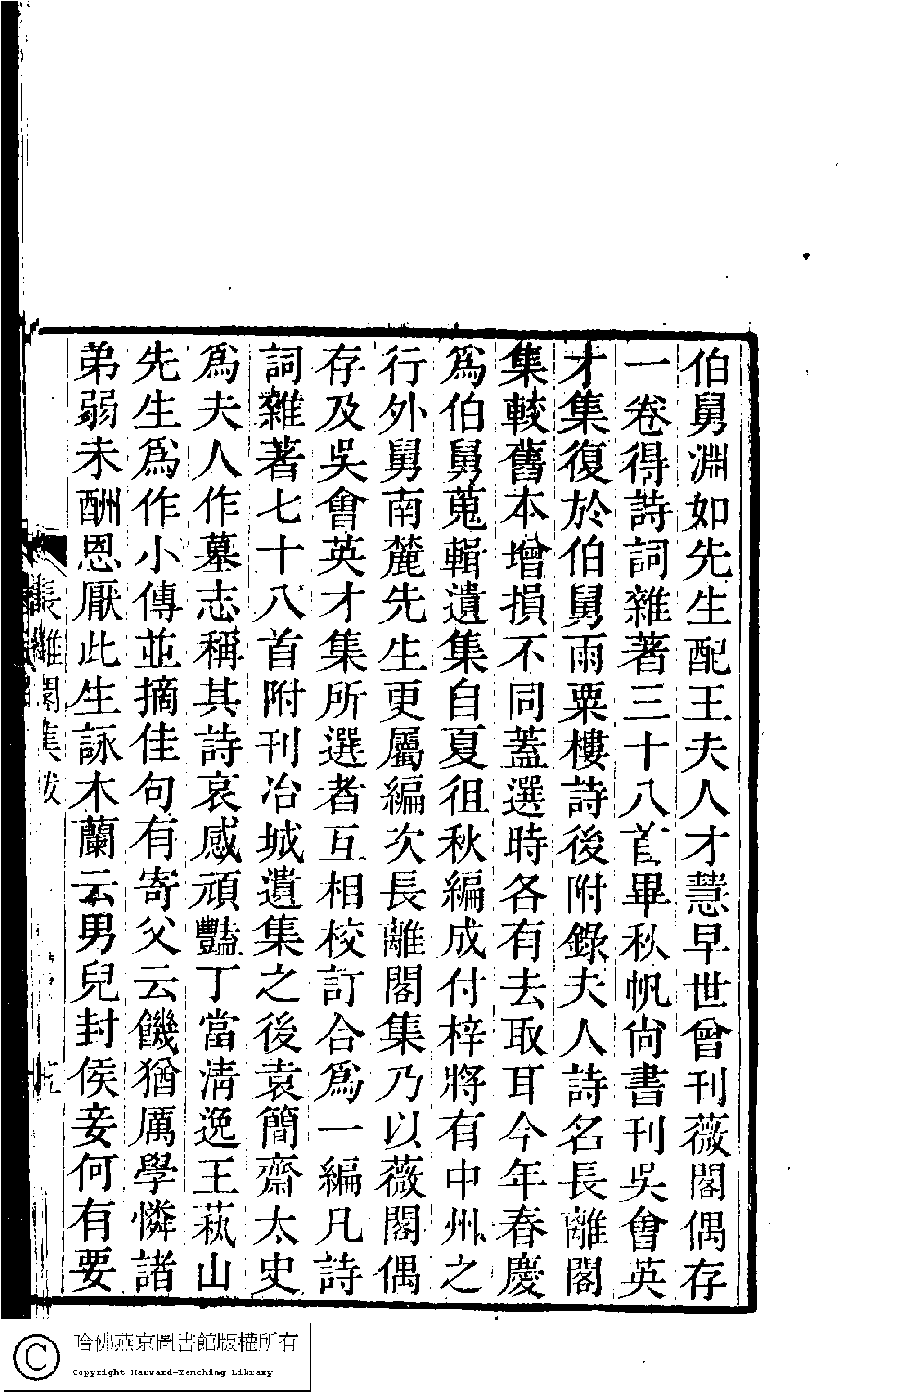 伯舅淵如先生配王夫人才慧早世曾刊薇閣偶存
一卷得詩詞雜著三十八首畢秋帆尙書刊吳會英
才集復於伯舅雨粟樓詩後附錄夫人詩名長離閣
集較舊本增損不同蓋選時各有去取耳今年春慶
爲伯舅蒐輯遺集自夏徂秋編成付梓將有中州之
行外舅南麓先生更屬編次長離閣集乃以薇閣偶
存及吳會英才集所選者互相校訂合爲一編凡詩
詞雜著七十八首附刊冶城遺集之後袁簡齋太史
爲夫人作墓志稱其詩哀感頑豔丁當淸逸王蓺山
先生爲作小傳並摘佳句有寄父云饑猶厲學憐諸
弟弱未酬恩厭此生詠木蘭云男兒封侯妾何有要
長離閣集跋
哈佛燕京圖書館版權所有
Copyright Harvard-Yenching Library